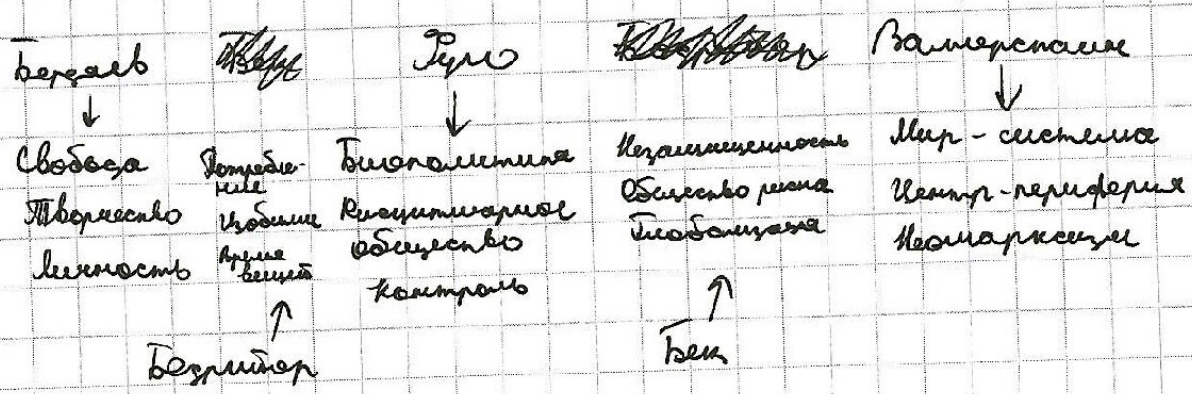 Бердяев
Свобода
Творчество
Личность
Потребле-
ние
Изобилие
Время
вещей
Бодрийяр
Фуко
Биополитика
Дисциплинарное
общество
контроль
Незащищенность
Общество риска
Глобализация
Бек
Валлерстайн
Мир-система
Центр-периферия
Неомарксизм